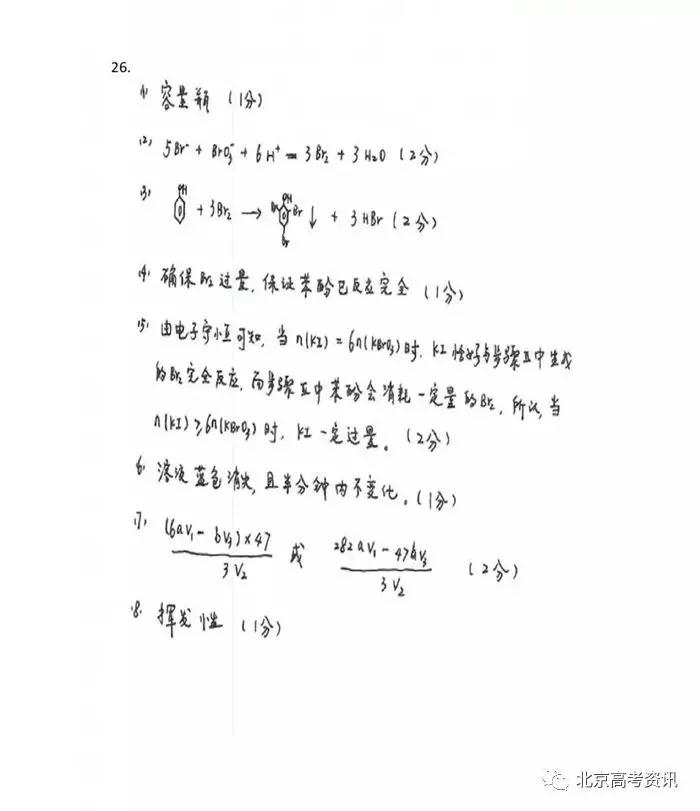 26.
(1) 容量瓶 (1分)
(2) 5Br⁻ + BrO₃⁻ + 6H⁺ = 3Br₂ + 3H₂O (2分)
(3) OH + 3Br₂ → OH Br Br Br ↓ + 3HBr (2分)
(4) 确保Br₂过量,保证苯酚已反应完全 (1分)
(5) 由电子守恒可知,当 n(KI) = 6n(KBrO₃)时,KI恰好与步骤Ⅱ中生成
的Br₂完全反应,而步骤Ⅱ中苯酚会消耗一定量的Br₂,所以,当
n(KI) ≥ 6n(KBrO₃)时,KI一定过量。(2分)
(6) 溶液蓝色消失,且半分钟内不变化。(1分)
(7) (6aV₁ - bV₃)×47 / 3V₂ 或 282aV₁ - 47bV₃ / 3V₂ (2分)
(8) 挥发性 (1分)
北京高考资讯